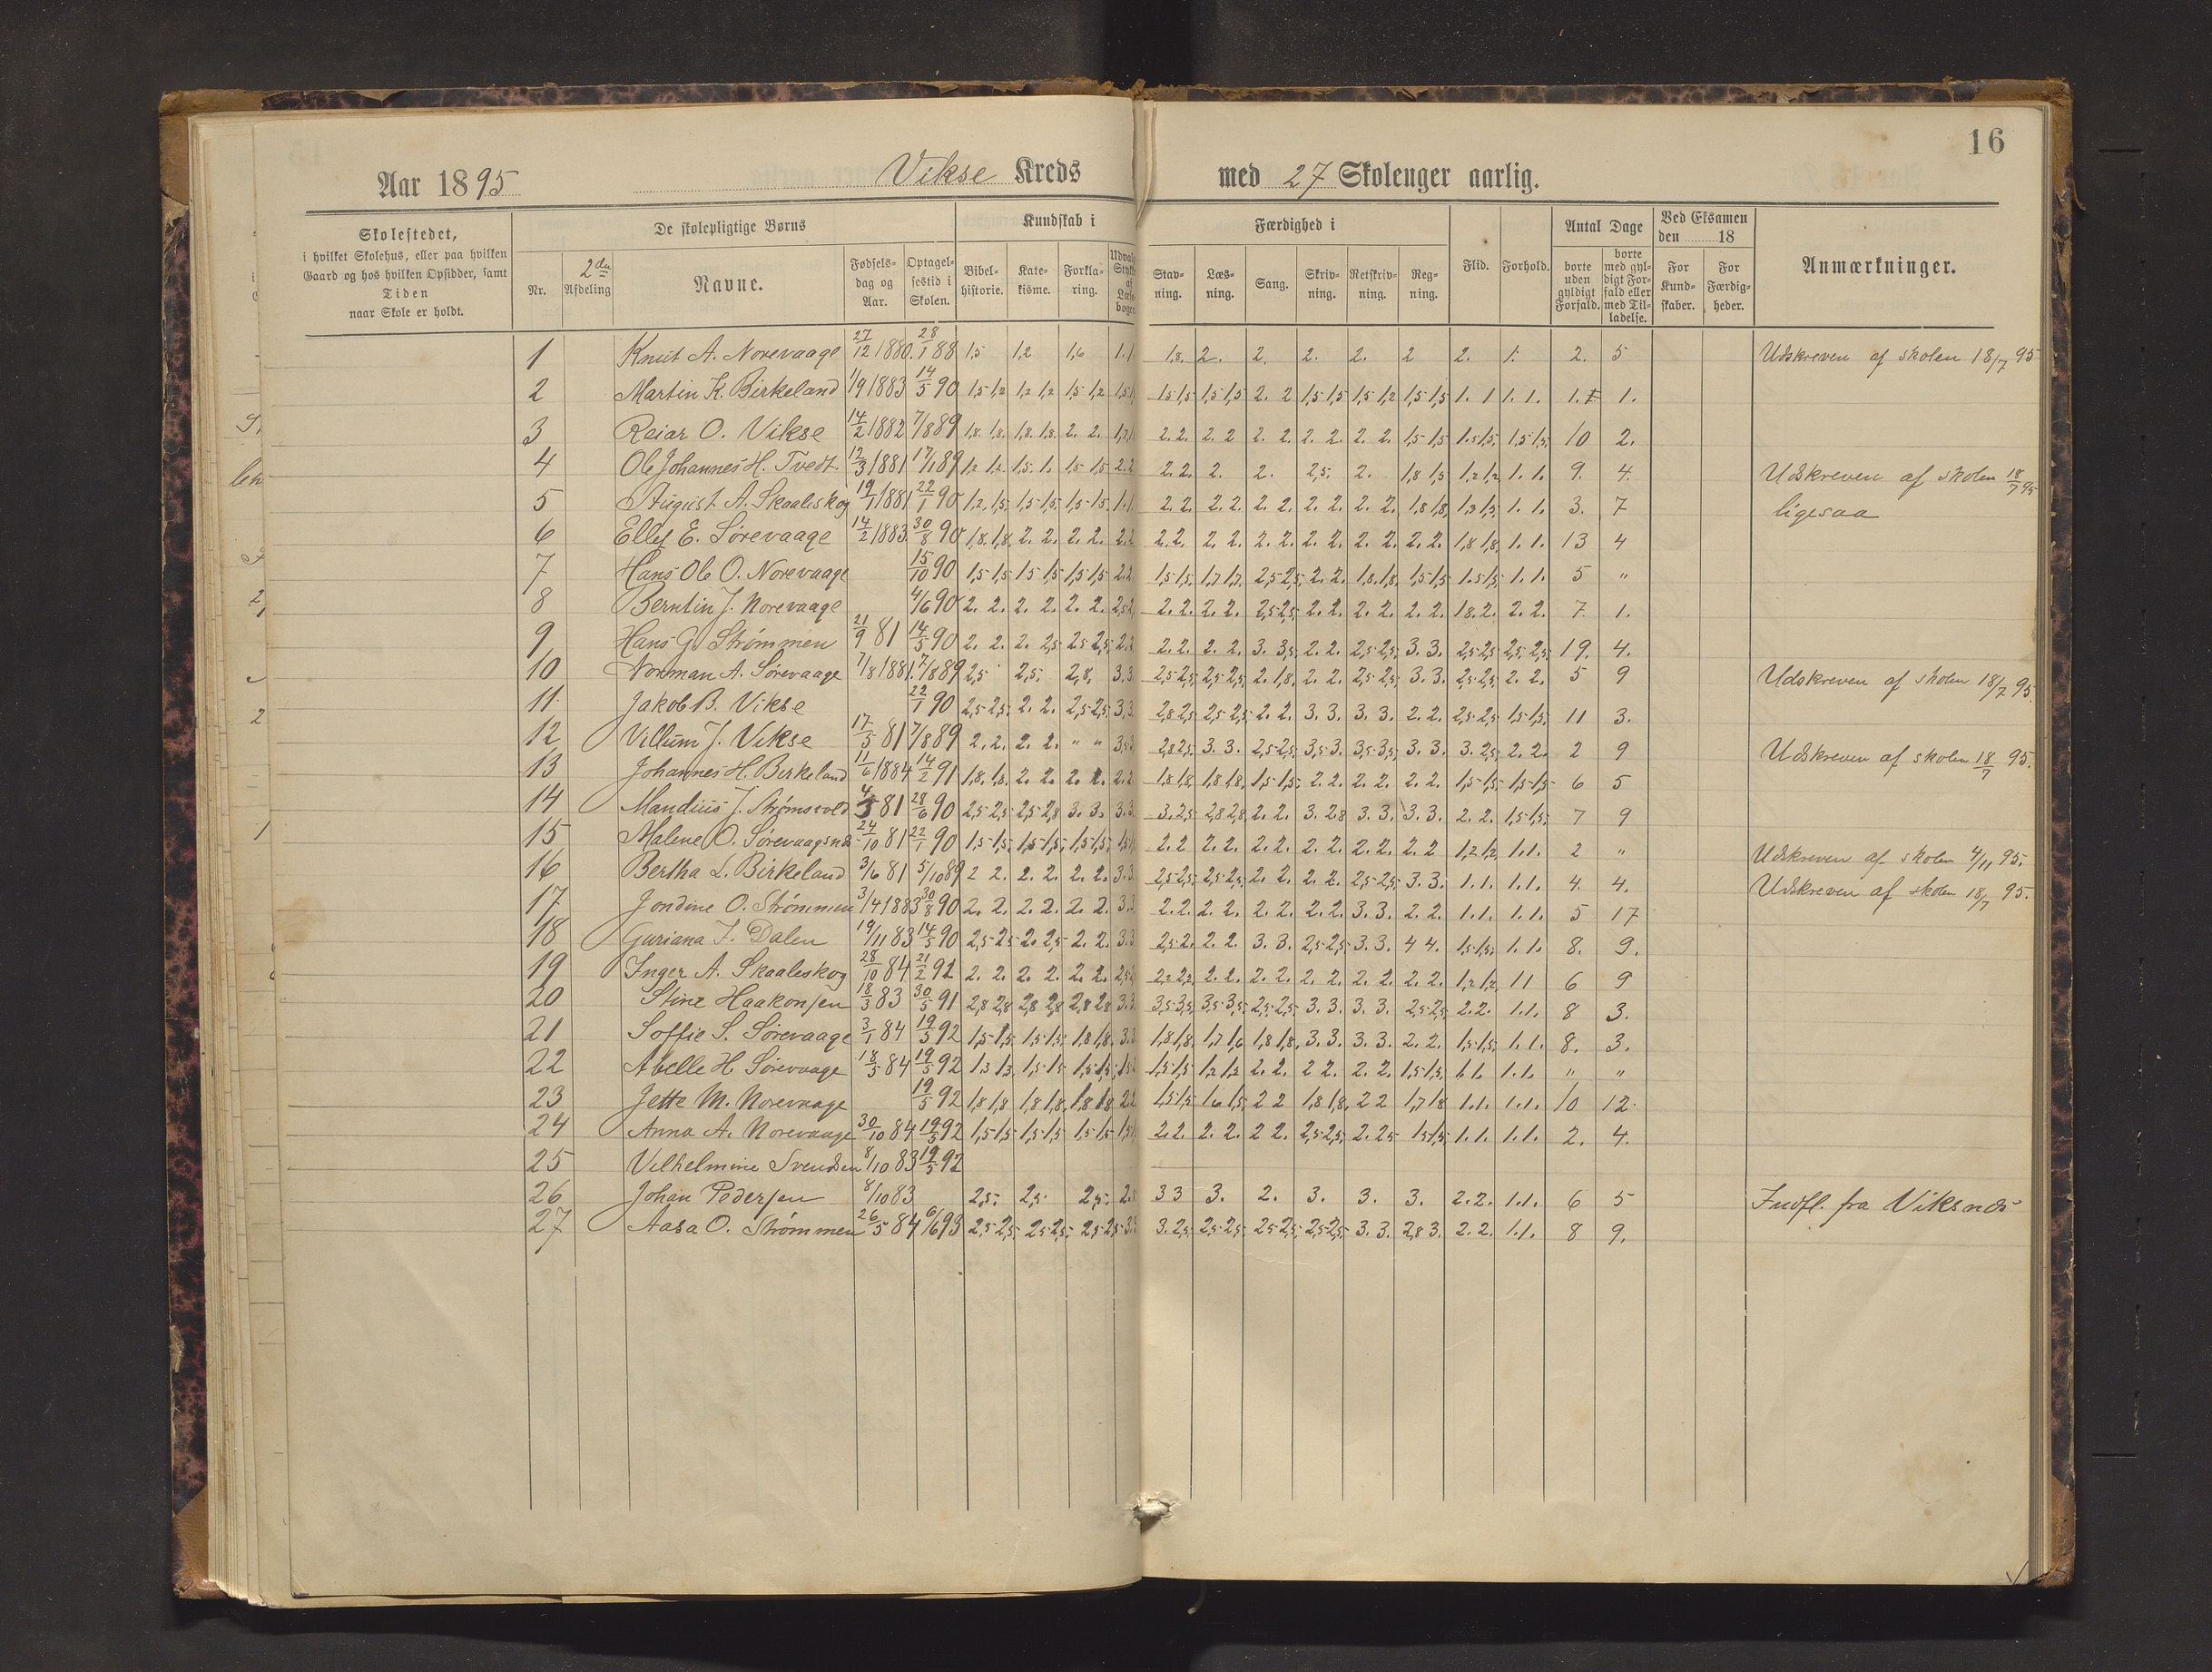 16
Aar 1895 Vikse Kreds med 27 Skoleuger aarlig.
Skolestedet,
i hvilket Skolehus, eller paa hvilken
Gaard og hos hvilken Opsidder, samt
Tiden
naar Skole er holdt.
De skolepligtige Børns
Nr. 2den Afdeling Navne. Fødsels-dag og Aar. Optagel-sestid i Skolen.
Kundskab i
Bibel-historie. Kate-kisme. Forkla-ring.
Færdighed i
Stav-ning. Læs-ning. Sang. Skriv-ning. Retskriv-ning. Reg-ning.
Flid. Forhold.
Antal Dage
borte uden gyldigt Forfald. borte med gyl-digt For-fald eller med Til-ladelse.
Ved Eksamen den 18
For Kund-skaber. For Færdig-heder.
Anmærkninger.
1 Knut A. Norevaage 27/12 1880. 28/1 88 1,5 1,2 1,6 1.1 1,8. 2. 2. 2. 2. 2 2. 1. 2. 5 Udskreven af skolen 18/7 95
2 Martin K. Birkeland 1/9 1883 14/5 90 1,5 1,2 1,2 1,2 1,5 1,2 1,5 1,5 1,5 1,5 2. 2 1,5 1,5 1,5 1,2 1,5 1,5 1. 1 1. 1. 1. 1.
3 Reiar O. Vikse 14/2 1882 7/8 89 1,8. 1,8. 1,8. 1,8. 2. 2. 2. 2. 2. 2 2. 2. 2. 2. 2. 2. 1,5 1,5 1,5 1,5. 1,5 1,5. 10 2.
4 Ole Johannes H. Tvedt. 12/3 1881 17/1 89 1,2 1,2. 1,5. 1. 1,5 1,5 2.2 2. 2. 2. 2. 2,5. 2. 1,8 1,5 1,2 1,2 1. 1. 9. 4. Udskreven af skolen 18/7 95
5 August A. Skaaleskog 19/1 1881 22/1 90 1,2. 1,5. 1,5 1,5. 1,5 1,5. 1.1. 2. 2. 2. 2. 2. 2. 2. 2. 2. 2. 1,8 1,8. 1,3 1,5. 1. 1. 3. 7 ligesaa
6 Ellef E. Sørevaage 14/2 1883. 30/8 90 1,8. 1,8. 2. 2. 2. 2. 2.2 2. 2. 2. 2. 2. 2. 2. 2. 2. 2. 2. 2. 1,8 1,8. 1. 1. 13 4
7 Hans Ole O. Norevaage 15/10 90 1,5 1,5 1,5 1,5 1,5 1,5 2.2. 1,5 1,5. 1,7 1,7. 2,5 2,5. 2. 2. 1,8. 1,8. 1,5 1,5 1,5 1,5. 1. 1. 5 "
8 Berntin J. Norevaage 4/6 90 2. 2. 2. 2. 2. 2. 2. 2. 2. 2. 2,5 2,5. 2. 2. 2. 2. 2. 2. 1,8. 2. 2. 2. 7. 1.
9 Hans G. Strømmen 21/9 81 14/5 90 2. 2. 2. 2,5 2,5 2,5. 2. 2. 2. 2. 3. 3,5. 2. 2. 2,5 2,5. 3. 3. 2,5 2,5 2,5. 2,5. 19. 4.
10 Norman A. Sørevaage 7/8 1881. 7/8 89 2,5 2,5. 2,8. 3.3. 2,5 2,5. 2,5 2,5. 2. 1,8. 2. 2. 2,5 2,5. 3. 3. 2,5 2,5. 2. 2. 5 9 Udskreven af skolen 18/7 95.
11. Jakob B. Vikse 22/1 90 2,5 2,5. 2. 2. 2,5 2,5. 3.3. 2,8 2,5. 2,5 2,5. 2. 2. 3. 3. 3. 3. 2. 2. 2,5 2,5 1,5 1,5. 11 3.
12 Villum J. Vikse 17/5 81 7/8 89 2. 2. 2. 2. " " 2,8 2,5. 3. 3. 2,5 2,5. 3,5 3. 3,5 3,5. 3. 3. 3. 2,5. 2. 2. 2 9 Udskreven af skolen 18/7 95.
13 Johannes H. Birkeland 11/6 1884 14/2 91 1,8. 1,8. 2. 2. 2. 2. 2.2 1,8 1,8. 1,8 1,8. 1,5 1,5. 2. 2. 2. 2. 2. 2. 1,5 1,5. 1,5 1,5 6 5
14 Mandius J. Strømsvold 81 28/6 90 2,5 2,5 2,5 2,8 3. 3. 3.3. 3. 2,5. 2,8 2,8. 2. 2. 3. 2,8 3. 3. 3. 3. 2. 2. 1,5 1,5. 7 9
15 Malene O. Sørevaagsnes 24/10 81 22/1 90 1,5 1,5. 1,5 1,5. 1,5 1,5. 2. 2 2. 2. 2. 2. 2. 2. 2. 2. 2. 2 1,2 1,2 1. 1. 2 " Udskreven af skolen 4/11 95.
16 Bertha L. Birkeland 3/6 81 5/10 89 2 2. 2. 2. 2. 2. 3.3 2,5 2,5. 2,5 2,5. 2. 2. 2. 2. 2,5 2,5. 3. 3. 1. 1. 1. 1. 4. 4. Udskreven af skolen 18/7 95.
17 Jondine O. Strømmen 3/4 1883 30/8 90 2. 2. 2. 2. 2. 2. 3.3 2. 2. 2. 2. 2. 2. 2. 2. 3. 3. 2. 2. 1. 1. 1. 1. 5 17
18 Guriana J. Dalen 19/11 83 14/5 90 2,5 2,5 2. 2,5 2. 2. 3.3 2,5 2. 2. 2. 3. 3. 2,5 2,5 3. 3. 4 4. 1,5 1,5. 1. 1. 8. 9.
19 Inger A. Skaaleskog 28/10 84 21/2 92 2. 2. 2. 2. 2. 2. 2. 2,2. 2. 2. 2. 2. 2. 2. 2. 2. 2. 2. 1,2 1,2 1 1 6 9
20 Stine Haakonsen 18/3 83 30/5 91 2,8 2,8 2,8 2,8 2,8 2,8 3.3. 3,5 3,5. 3,5 3,5 2,5 2,5. 3. 3. 3. 3. 2,5 2,5. 2. 2. 1. 1. 8 3.
21 Soffie S. Sørevaage 3/1 84 19/5 92 1,5 1,5. 1,5 1,5. 1,8 1,8. 3.3 1,8 1,8. 1,7 1,6 1,8 1,8. 3. 3. 3. 3. 2. 2. 1,5 1,5. 1. 1. 8. 3.
22 Abelle H. Sørevaage 18/5 84 19/5 92 1,3 1,3. 1,5 1,5 1,5 1,5. 1,5 1,5 1,2 1,2 2. 2. 2 2. 2. 2. 1,5 1,5. 1. 1. 1. 1. " "
23 Jette M. Norevaage 19/5 92 1,8 1,8 1,8 1,8. 1,8 1,8 2.2 1,5 1,5 1,6 1,5. 2 2 1,8 1,8. 2 2 1,7 1,8 1. 1. 1. 1. 10 12.
24 Anna A. Norevaage 30/10 84. 19/5 92 1,5 1,5 1,5 1,5 1,5 1,5 2. 2. 2. 2. 2 2. 2,5 2,5. 2. 2,5 1,5 1,5. 1. 1. 1. 1. 2. 4.
25 Vilhelmine Svendsen 8/10 83 19/5 92
26 Johan Pedersen 8/10 83 2,5. 2,5. 2,5. 3 3 3. 2. 3. 3. 3. 2. 2. 1. 1. 6 5 Indfl. fra Viksnes
27 Aasa O. Strømmen 26/5 84 6/6 93 2,5 2,5. 2,5 2,5. 2,5 2,5 3.3 3. 2,5. 2,5 2,5. 2,5 2,5. 2,5 2,5. 3. 3. 2,8 3. 2. 2. 1. 1. 8 9.